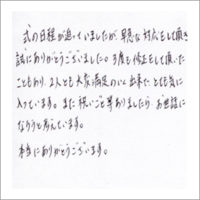 式の日程が迫っていましたが、早急な対応をして頂き
誠にありがとうございました。3度も修正をして頂いた
こともあり、2人とも大変満足のいく出来で、とても気に
入っています。また祝いごと等ありましたら、お世話に
なろうと考えています。
本当にありがとうございます。